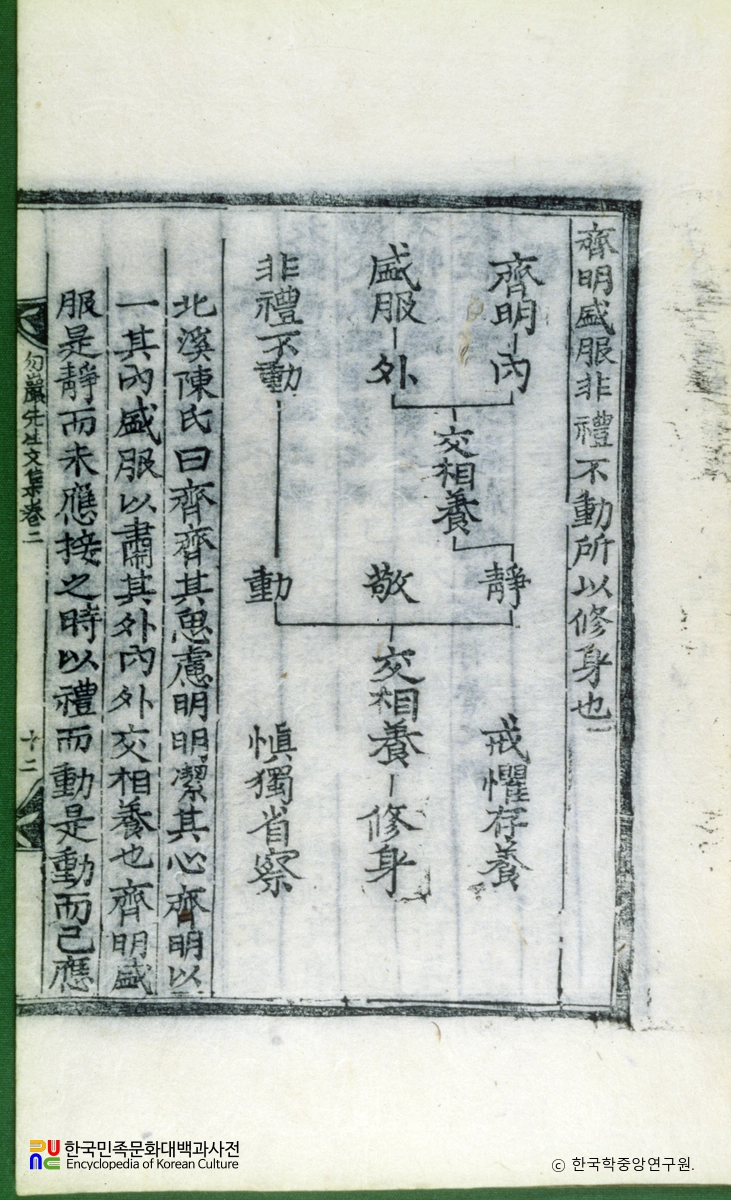 齊明盛服非禮不動所以修身也
齊明 內
盛服 外
非禮不動
交相養
靜
敬
動
戒懼存養
交相養 修身
愼獨省察
北溪陳氏曰齊齊其思慮明明潔其心齊明以
一其內盛服以肅其外內外交相養也齊明盛
服是靜而未應接之時以禮而動是動而已應
勿巖先生文集卷二
十二
한국민족문화대백과사전
Encyclopedia of Korean Culture
© 한국학중앙연구원.